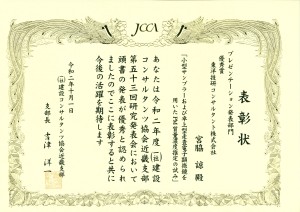 JCCA
表彰状
プレゼンテーション発表部門
優秀賞
東洋技研コンサルタント株式会社
宮脇 諒殿
「小型サンプラーおよび卓上型走査電子顕微鏡を
用いたPM質量濃度推定の試み」
あなたは令和二年度(一社)建設
コンサルタンツ協会近畿支部
第五十三回研究発表会において
頭書の発表が優秀と認められ
ましたのでここに表彰すると共に
今後の活躍を期待します
令和二年十月一日
(一社)建設コンサルタンツ協会近畿支部
支部長 吉津 洋一